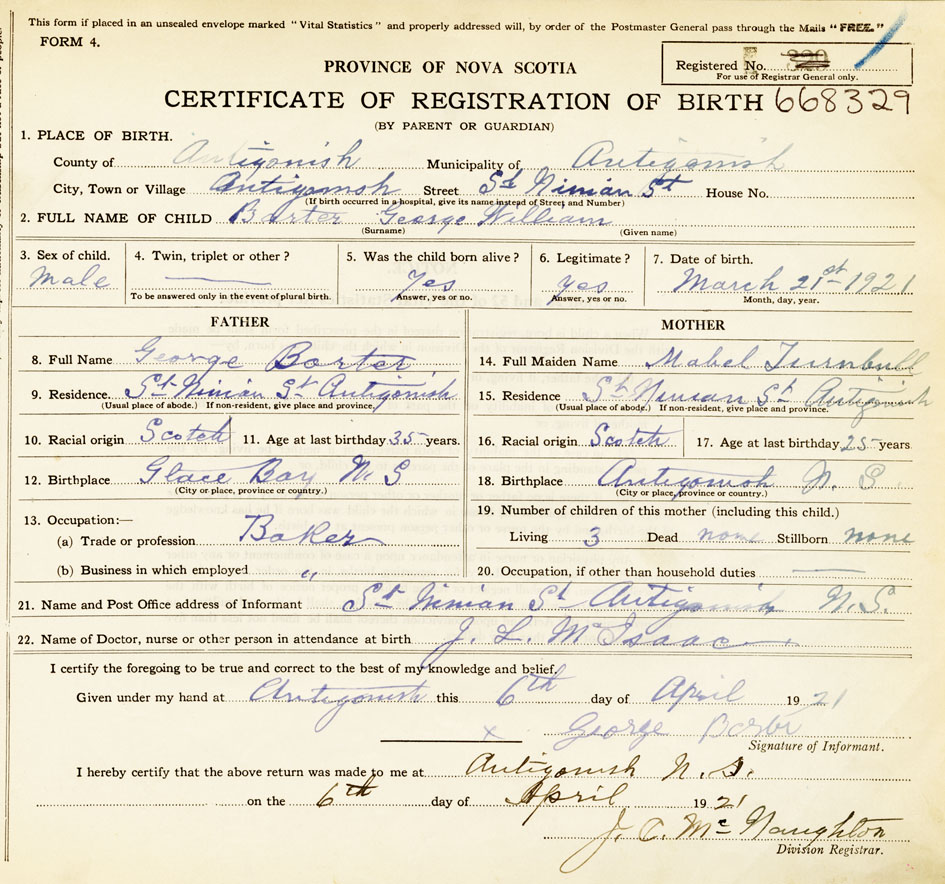 This form if placed in an unsealed envelope marked "Vital Statistics" and properly addressed will, by order of the Postmaster General pass through the Mails "FREE."
FORM 4.
Registered No. 320
For use of Registrar General only.
PROVINCE OF NOVA SCOTIA
CERTIFICATE OF REGISTRATION OF BIRTH 668329
(BY PARENT OR GUARDIAN)
1. PLACE OF BIRTH.
County of Antigonish Municipality of Antigonish
City, Town or Village Antigonish Street St Ninian St House No.
(If birth occurred in a hospital, give its name instead of Street and Number)
2. FULL NAME OF CHILD Barter George William
(Surname) (Given name)
3. Sex of child. 4. Twin, triplet or other? 5. Was the child born alive? 6. Legitimate? 7. Date of birth.
Male Yes yes March 21st 1921
To be answered only in the event of plural birth. Answer, yes or no. Answer, yes or no. Month, day, year.
FATHER
8. Full Name George Barter
9. Residence. St Ninian St Antigonish
(Usual place of abode.) If non-resident, give place and province.
10. Racial origin Scotch 11. Age at last birthday 35 years.
12. Birthplace Glace Bay N S
(City or place, province or country.)
13. Occupation:—
(a) Trade or profession Baker
(b) Business in which employed "
MOTHER
14. Full Maiden Name Mabel Turnbull
15. Residence St Ninian St Antigonish
(Usual place of abode.) If non-resident, give place and province.
16. Racial origin Scotch 17. Age at last birthday 25 years
18. Birthplace Antigonish N. S
(City or place, province or country.)
19. Number of children of this mother (including this child.)
Living 3 Dead none Stillborn none
20. Occupation, if other than household duties
21. Name and Post Office address of Informant St Ninian St Antigonish N.S.
22. Name of Doctor, nurse or other person in attendance at birth. J. L. McIsaac
I certify the foregoing to be true and correct to the best of my knowledge and belief.
Given under my hand at Antigonish this 6th day of April 1921
x George Barter
Signature of Informant.
I hereby certify that the above return was made to me at Antigonish N. S.
on the 6th day of April 1921
J. C. McNaughton
Division Registrar.